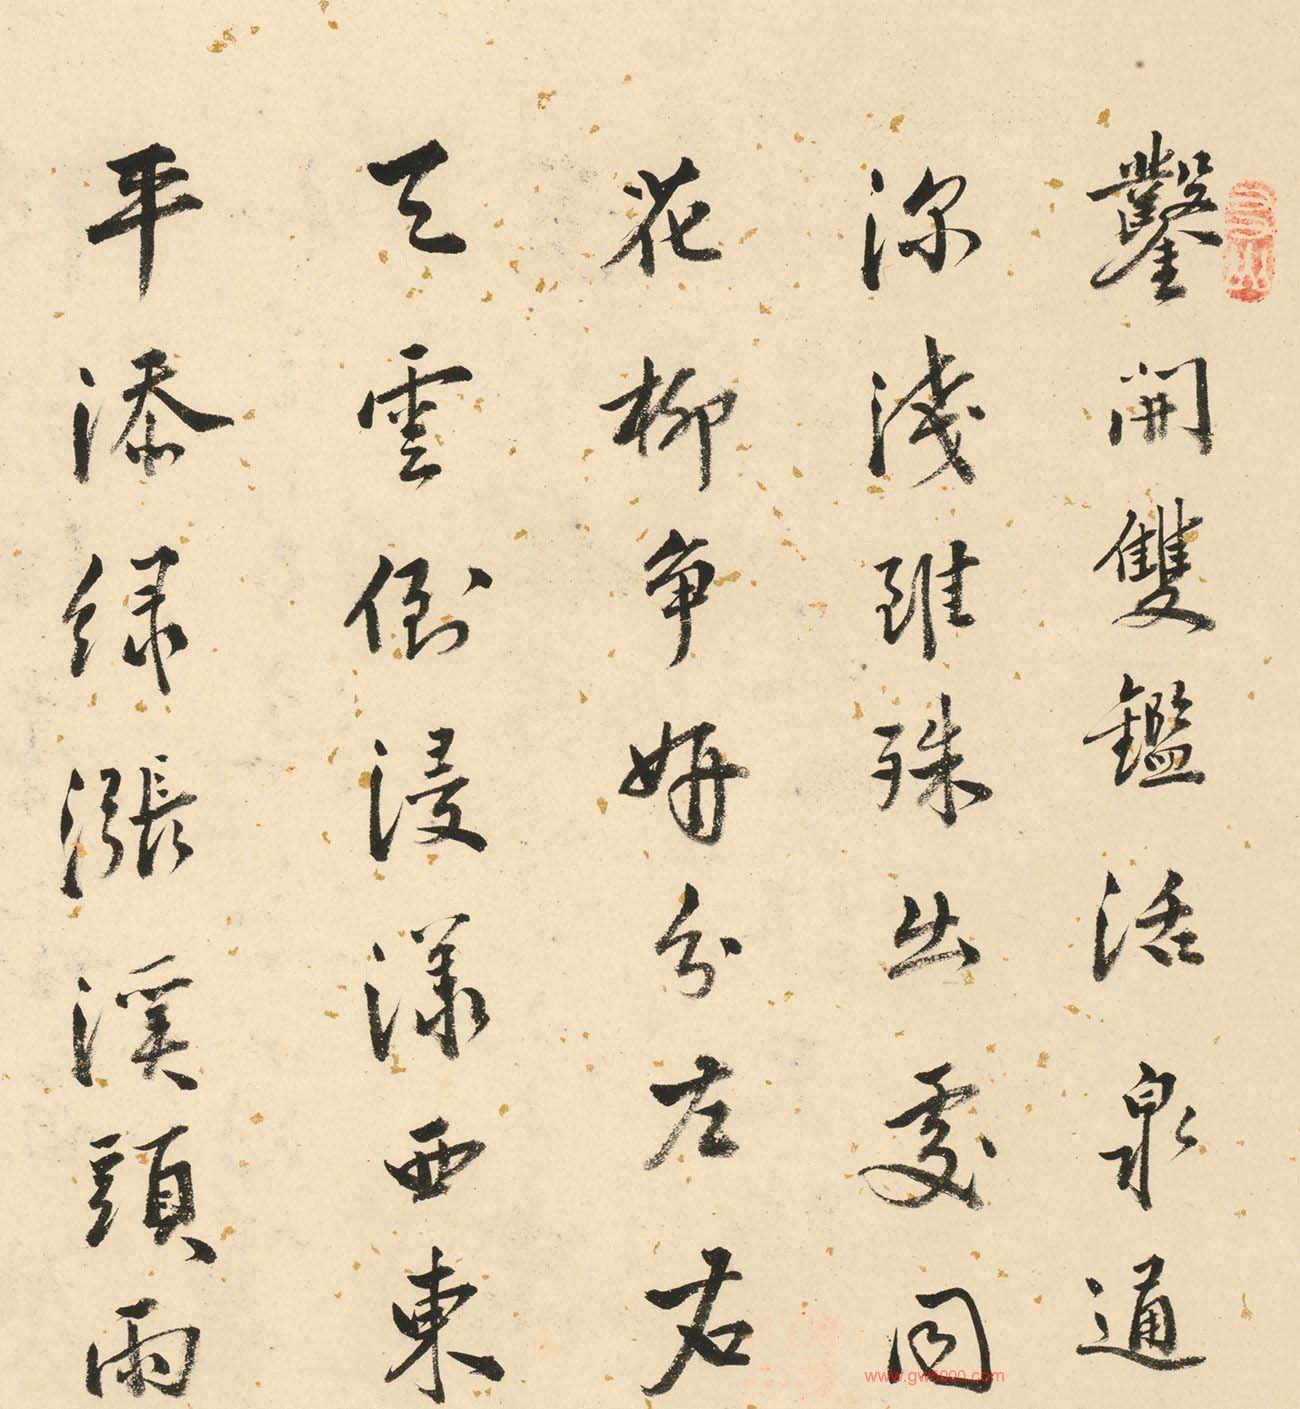 鑿開雙鑑活泉通
深淺雖殊出處同
花柳爭妍分左右
天雲倒浸漾西東
平添綠漲溪頭雨
www.gw8000.com